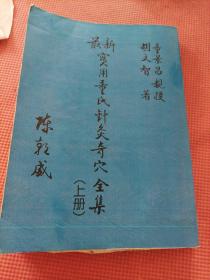 董景昌親授
胡文智 著
最新實用董氏針灸奇穴全集
(上册)
陈乾威